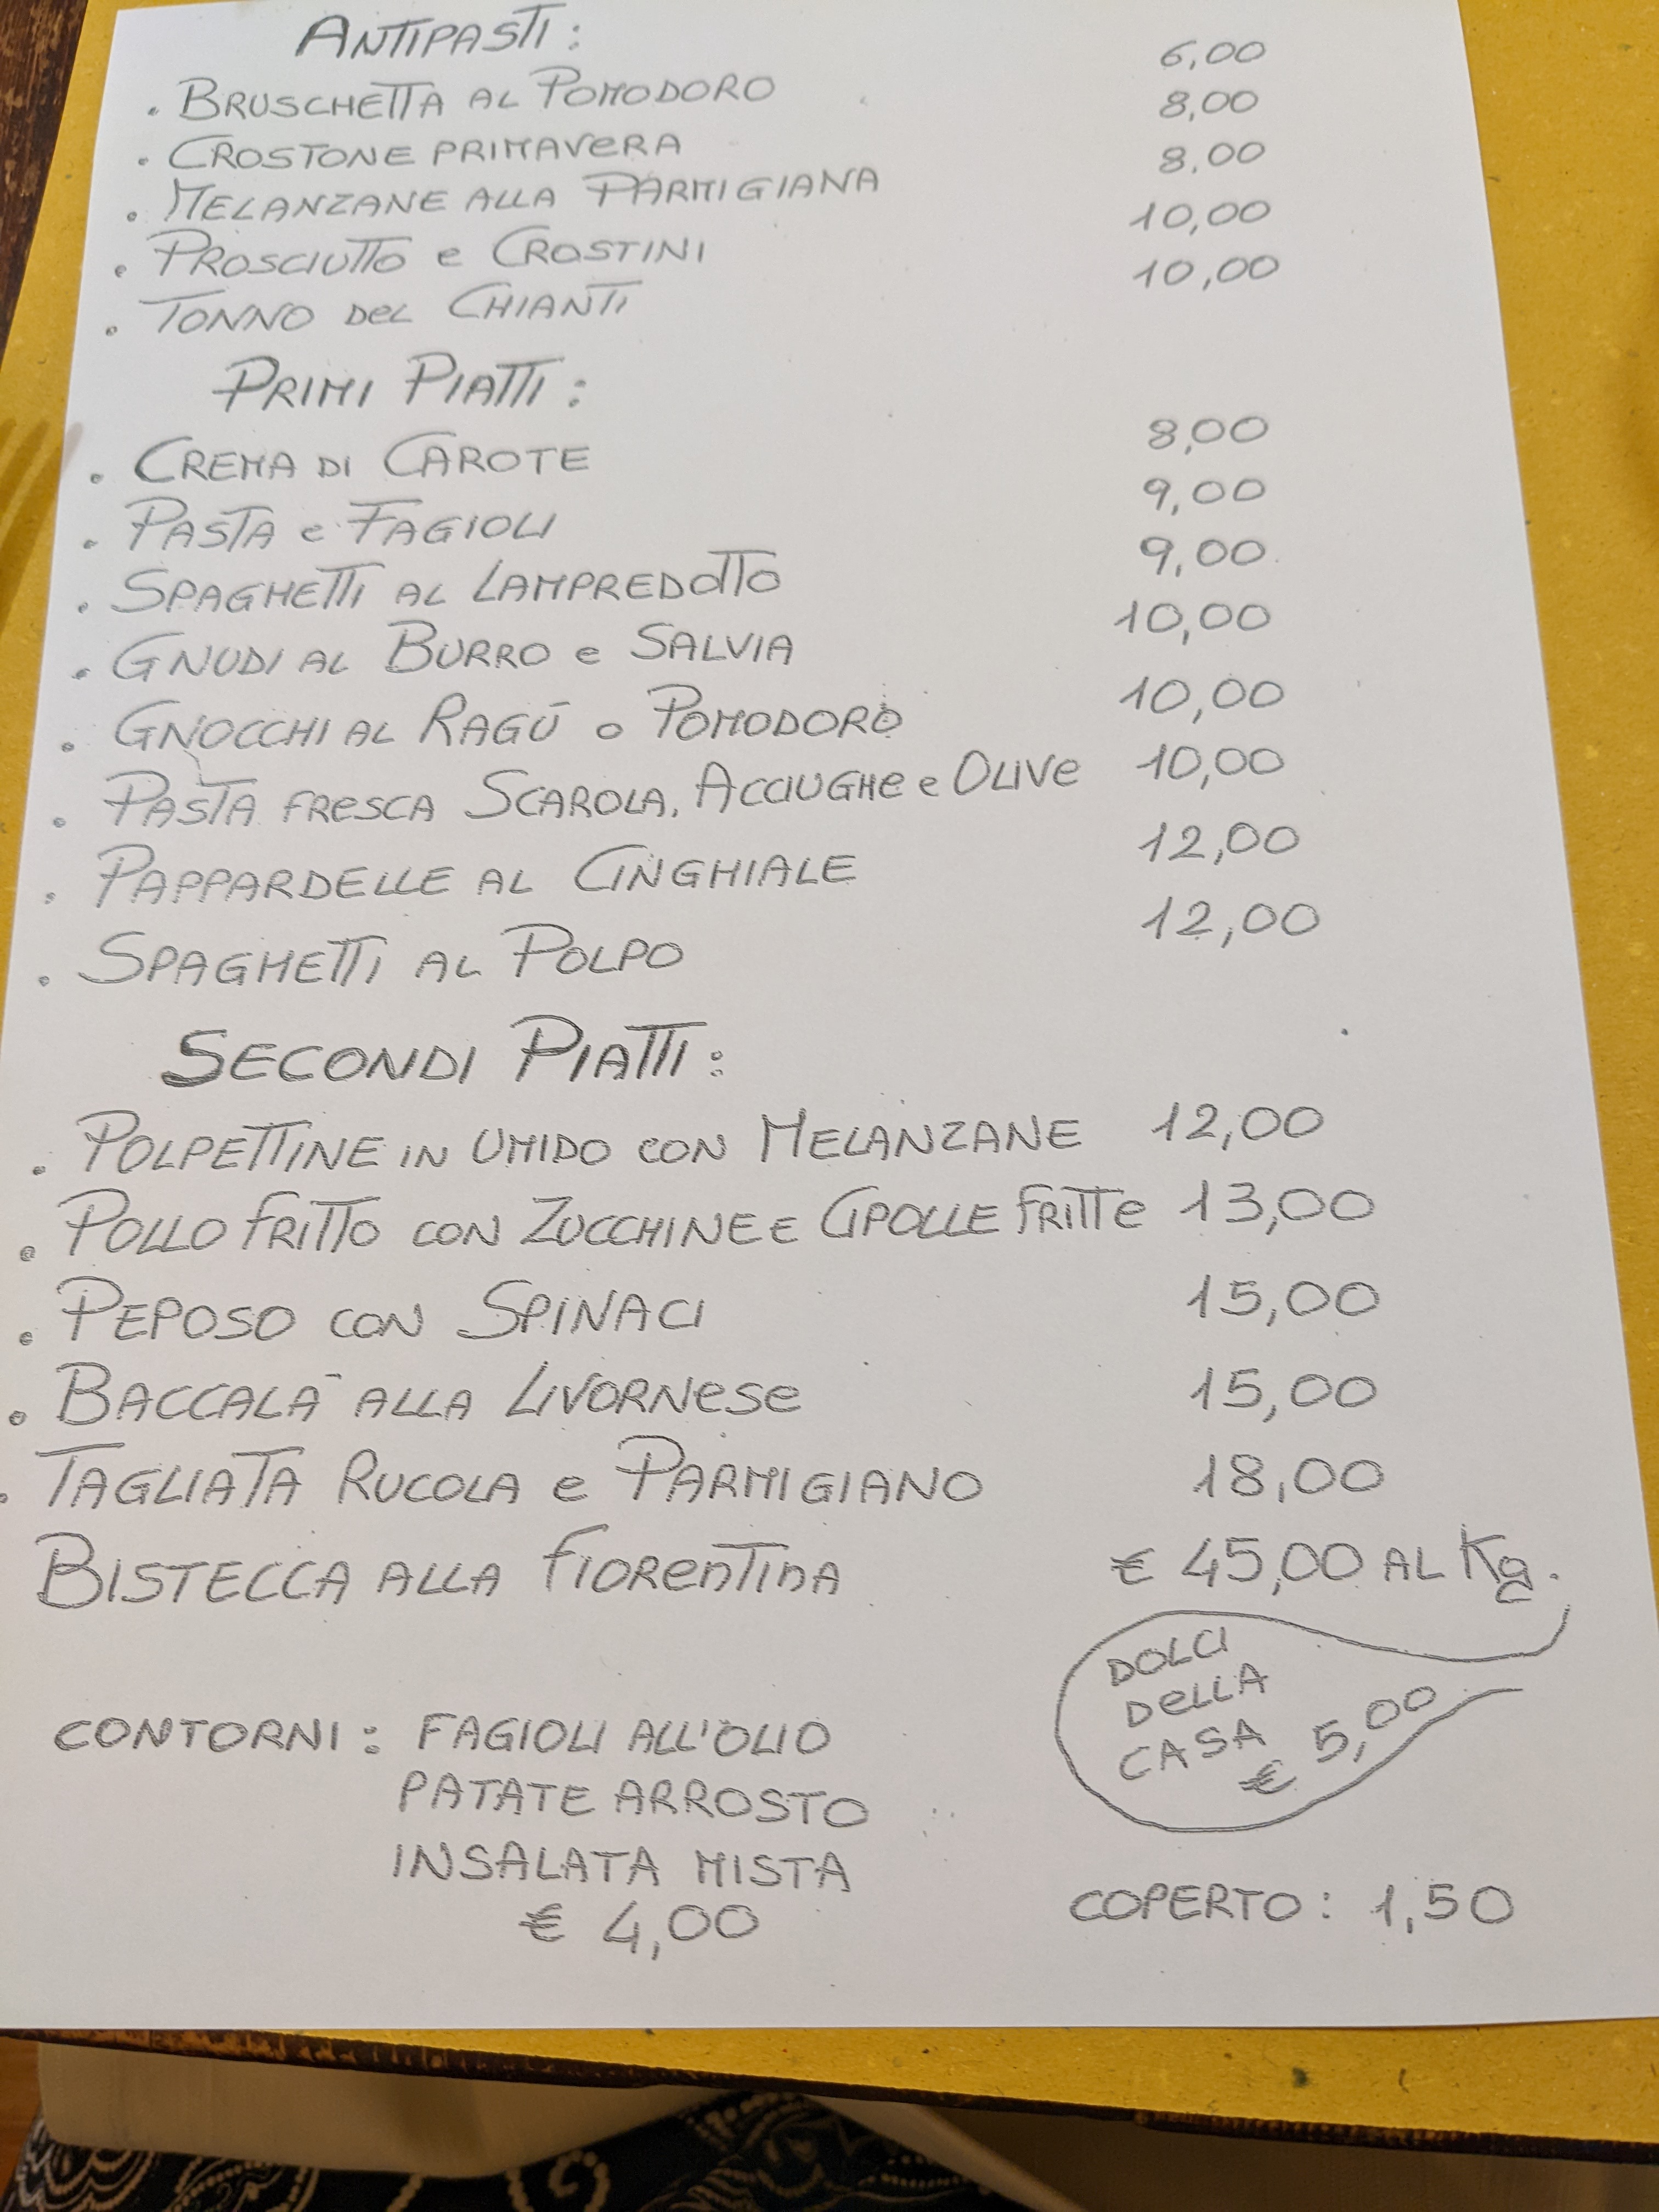 ANTIPASTI:
. BRUSCHETTA AL POMODORO 6,00
. CROSTONE PRIMAVERA 8,00
. MELANZANE ALLA PARMIGIANA 8,00
. PROSCIUTTO e CROSTINI 10,00
. TONNO DEL CHIANTI 10,00
PRIMI PIATTI:
. CREMA DI CAROTE 8,00
. PASTA e FAGIOLI 9,00
. SPAGHETTI AL LAMPREDOTTO 9,00
. GNUDI AL BURRO e SALVIA 10,00
. GNOCCHI AL RAGÚ o POMODORO 10,00
. PASTA FRESCA SCAROLA, ACCIUGHE e OLIVE 10,00
. PAPPARDELLE AL CINGHIALE 12,00
. SPAGHETTI AL POLPO 12,00
SECONDI PIATTI:
. POLPETTINE IN UMIDO CON MELANZANE 12,00
. POLLO FRITTO CON ZUCCHINE E CIPOLLE FRITTE 13,00
. PEPOSO CON SPINACI 15,00
. BACCALÀ ALLA LIVORNESE 15,00
. TAGLIATA RUCOLA e PARMIGIANO 18,00
BISTECCA ALLA FIORENTINA € 45,00 AL Kg.
DOLCI
DELLA
CASA
€ 5,00
CONTORNI: FAGIOLI ALL'OLIO
PATATE ARROSTO
INSALATA MISTA
€ 4,00
COPERTO: 1,50